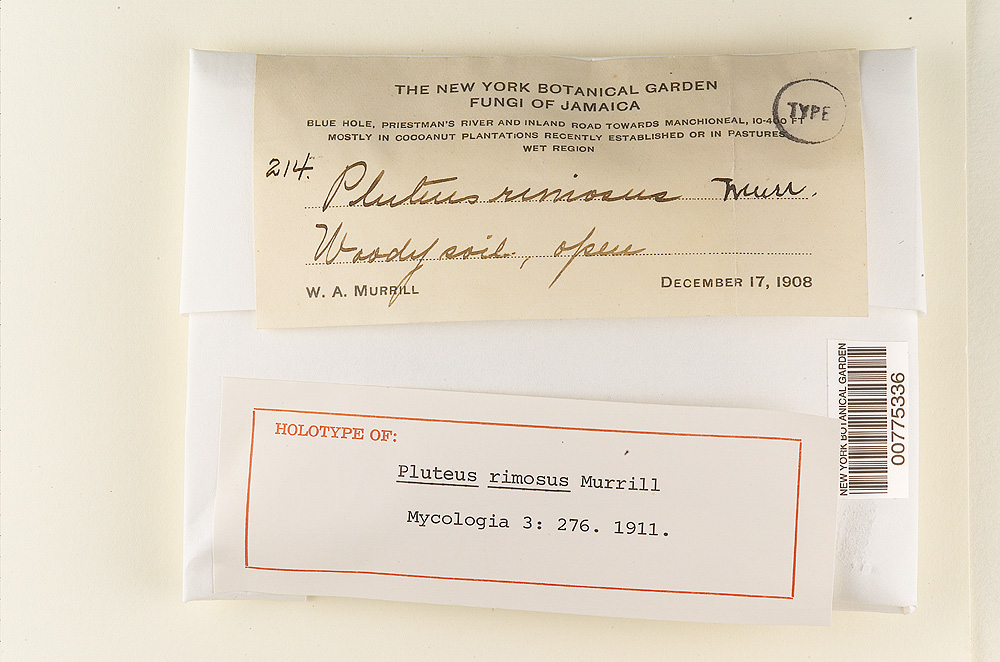 THE NEW YORK BOTANICAL GARDEN
FUNGI OF JAMAICA
TYPE
BLUE HOLE, PRIESTMAN'S RIVER AND INLAND ROAD TOWARDS MANCHIONEAL, 10-400 FT
MOSTLY IN COCOANUT PLANTATIONS RECENTLY ESTABLISHED OR IN PASTURES
WET REGION
214. Pluteus rimosus Murr.
Woody soil, open
W. A. MURRILL DECEMBER 17, 1908
NEW YORK BOTANICAL GARDEN
00775336
HOLOTYPE OF:
Pluteus rimosus Murrill
Mycologia 3: 276. 1911.